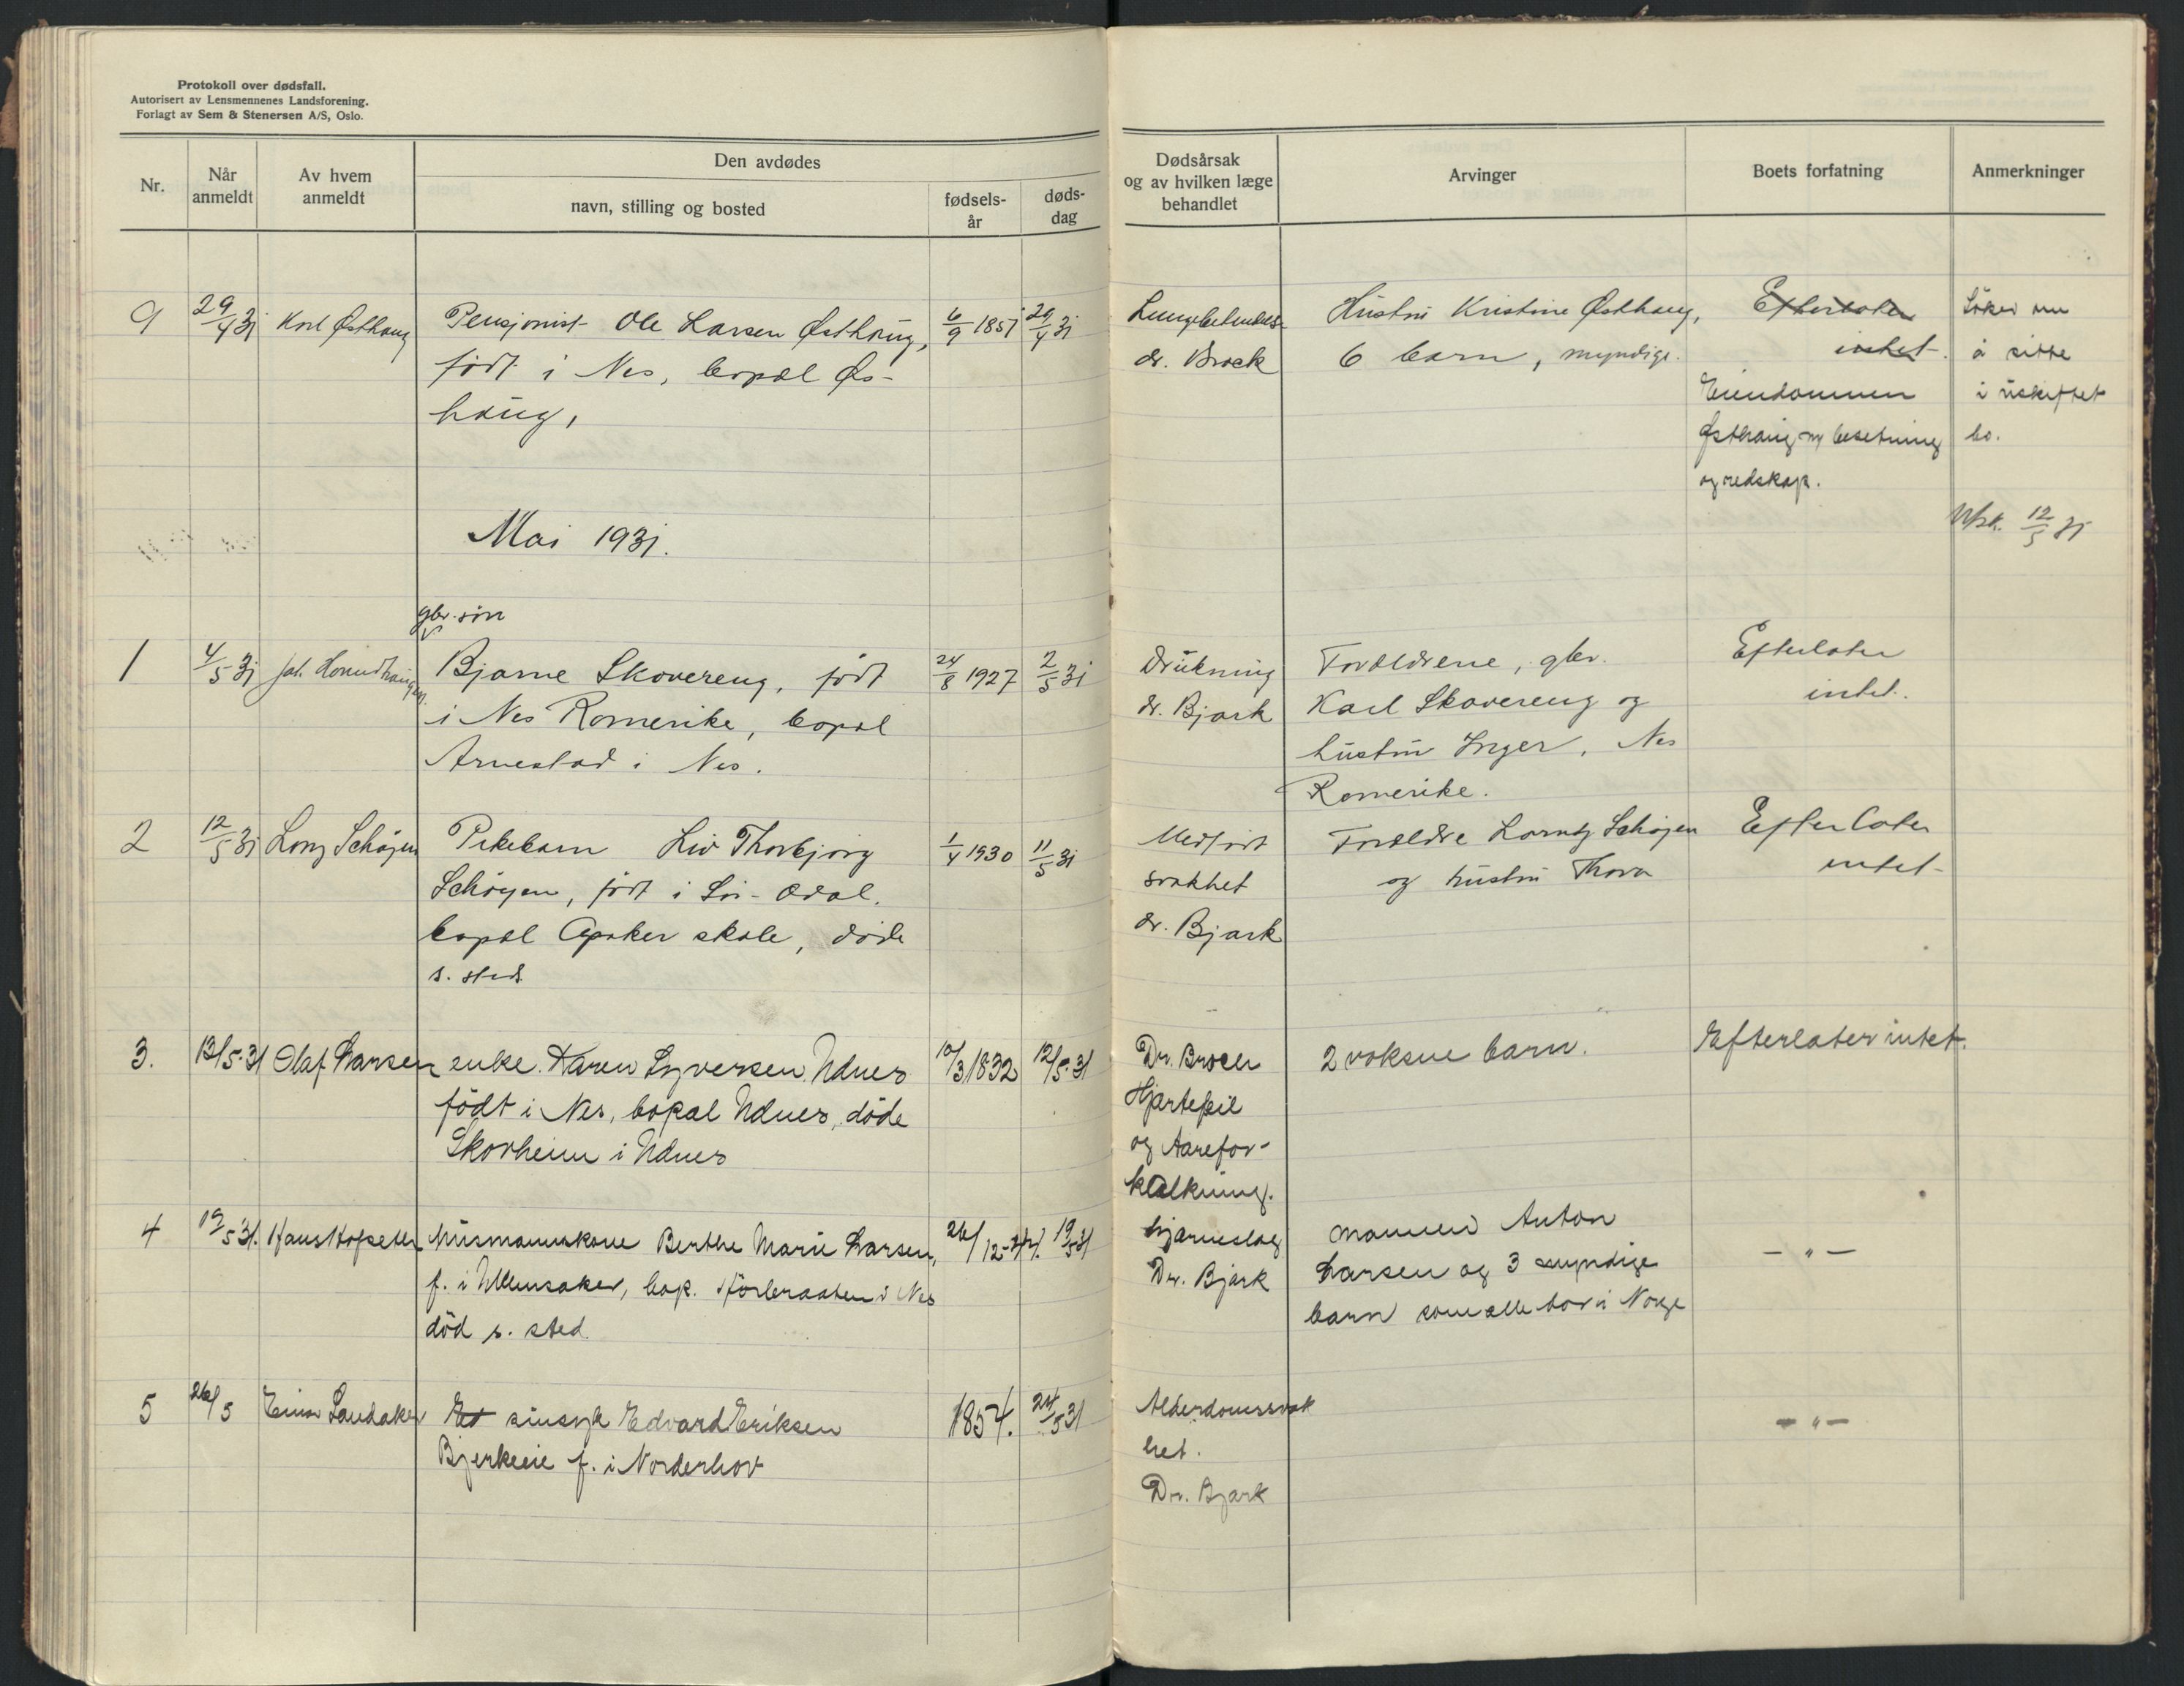 Protokoll over dødsfall.
Autorisert av Lensmennenes Landsforening.
Forlagt av Sem & Stenersen A/S, Oslo.
Nr.
Når anmeldt
Av hvem anmeldt
Den avdødes
navn, stilling og bosted
fødsels-år
døds-dag
Dødsårsak og av hvilken læge behandlet
Arvinger
Boets forfatning
Anmerkninger
9 29/4 31 Karl Østhaug Pensjonist Ole Larsen Østhaug, 6/9 1851 29/4 31 Hustru Kristine Østhaug, Efterlater Søker om
født i Nes, bopæl Øs- dr. Brock 6 barn, myndige. intet. å sitte
haug, Eiendommen i uskiftet
Østhaug m besetning bo.
og redskap.
Mai 1931. 12/5 31
gbr. søn
1 4/5 31 Bjarne Skovereng, født 24/8 1927 2/5 31 Drukning Forældrene, gbr. Efterlater
i Nes Romerike, bopæl dr. Bjark Karl Skovereng og intet.
Arnestad i Nes. hustru Inger, Nes
Romerike.
2 12/5 31 Schøyen Pikebarn Liv Thorbjørg 1/4 1930 11/5 31 Medført Forældre Schøyen Efterlater
Schøyen, født i Sør-Odal. svakhet og hustru Thora intet
bopæl skole, døde dr. Bjark
s. sted
3. 13/5-31 Olaf Larsen enke Karen Syversen Udnes 10/3 1832 12/5-31 Dr. Brock 2 voksne barn. Efterlater intet.
født i Nes, bopæl Udnes, døde Hjertefeil
Skovheim i Udnes og Aarefor-
kalkning.
4 19/5 31. Hans Hofseter husmannskone Berthe Marie Larsen, 26/12- 19/5 31 hjerneslag mannen Anton – " –
f. i Ullensaker, bop. i Nes Dr. Bjark Larsen og 3 myndige
død s. sted. barn som alle bor i Norge
5 26/5 Einar Sandaker Et sinsyk Edvard Eriksen 1854. 24/5 31 Alderdomssvak – " –
Bjerkeeie f. i Norderhov het.
Dr. Bjark